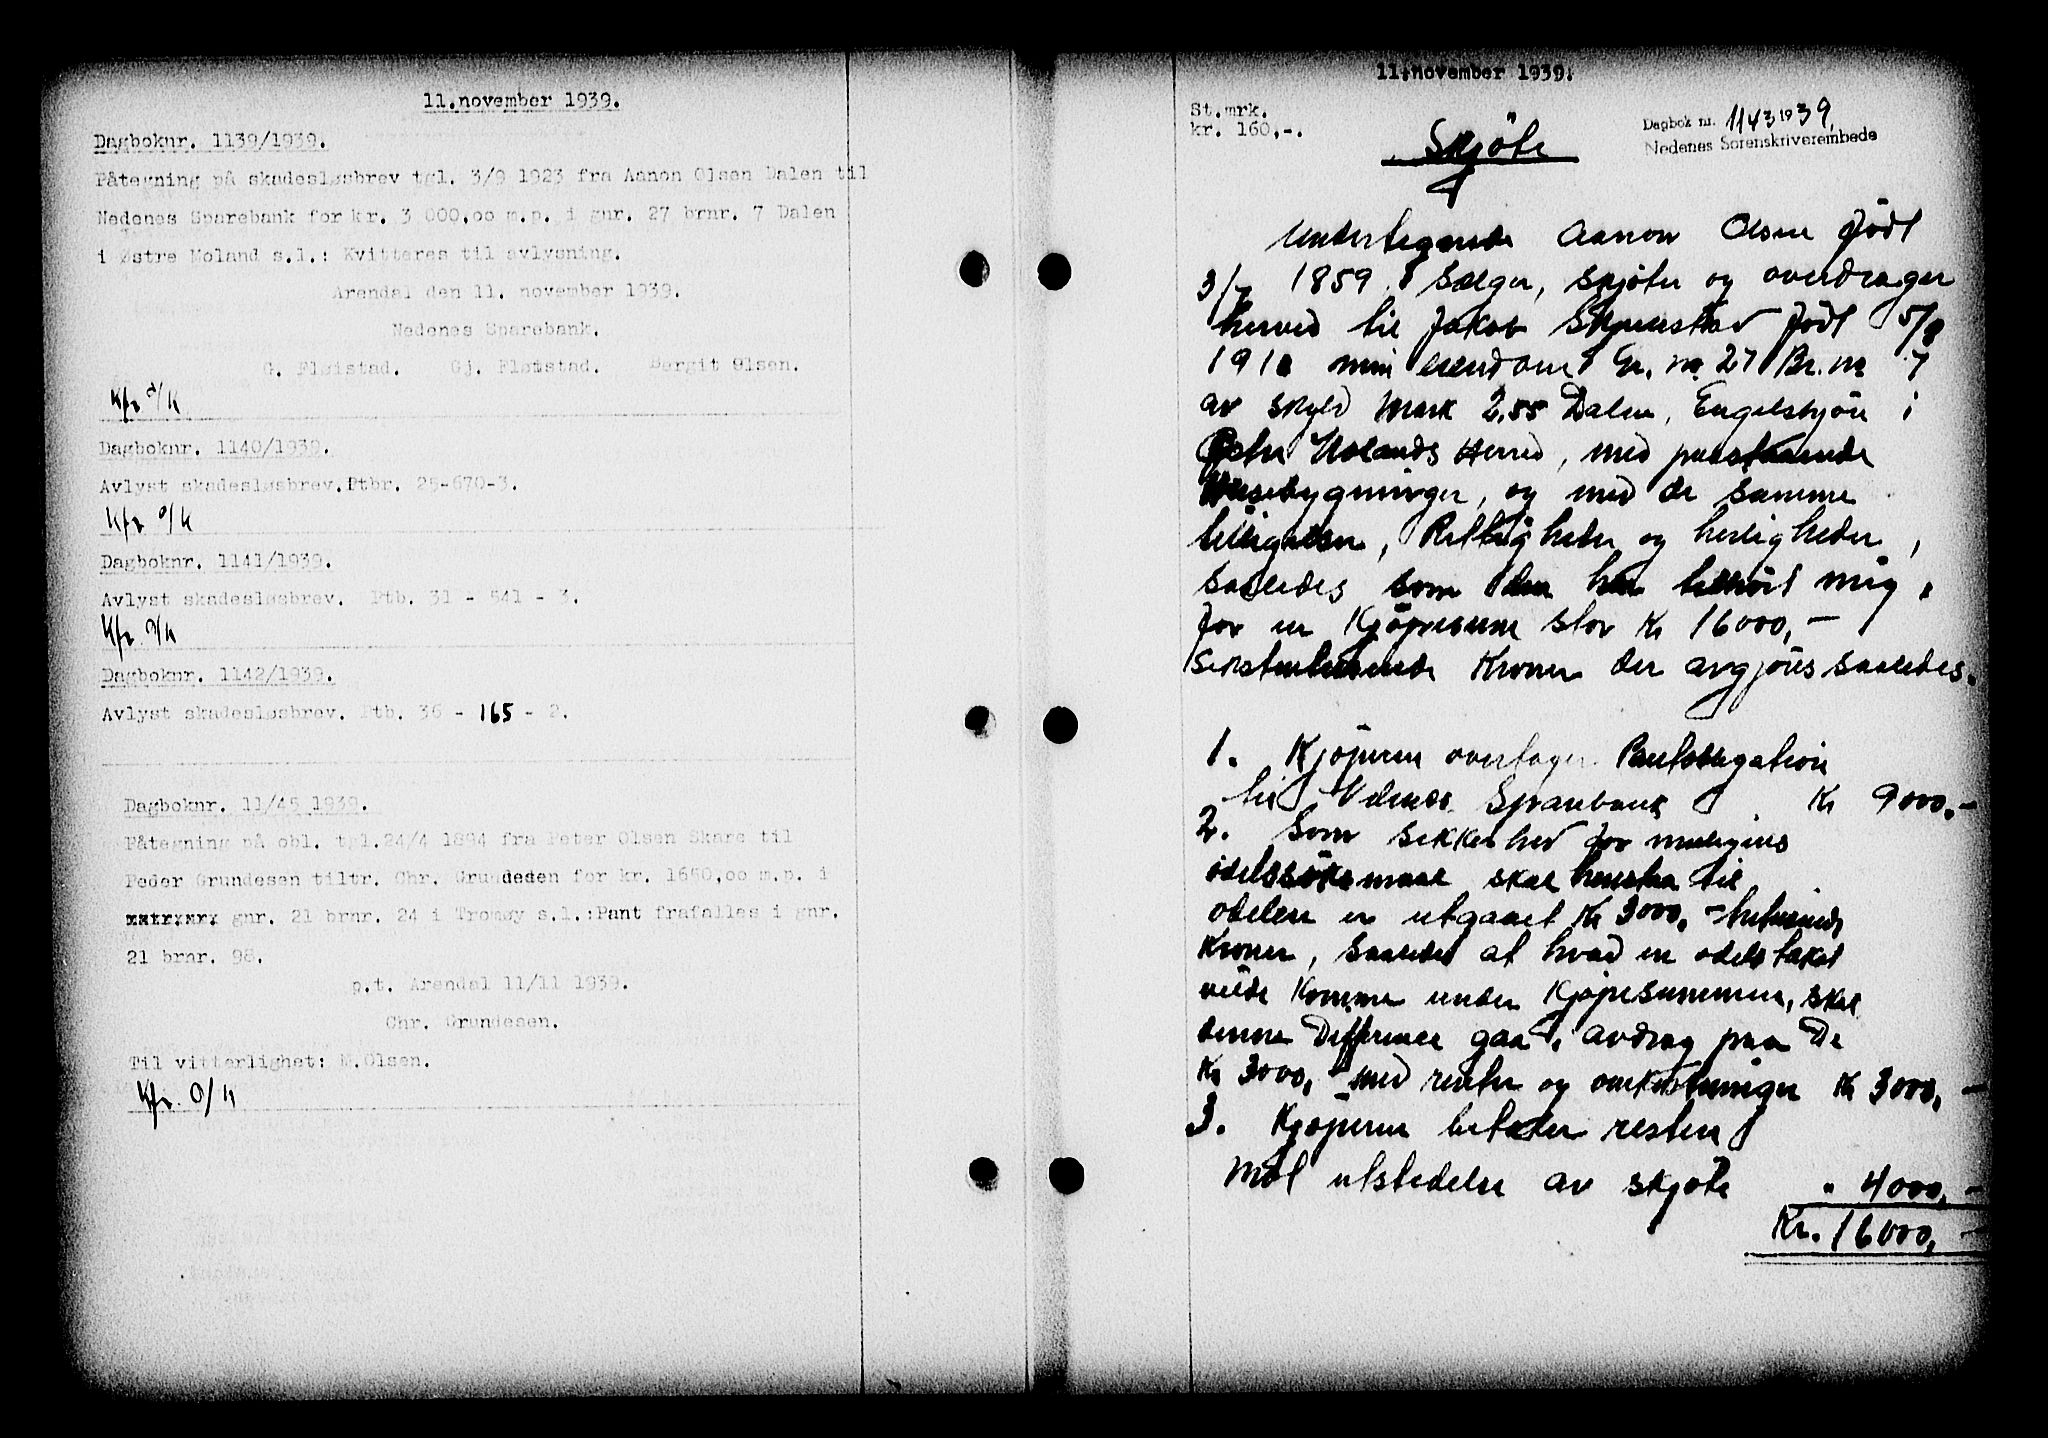 11.november 1939.
Dagboknr. 1139/1939.
Påtegning på skadesløsbrev tgl. 3/9 1923 fra Aanon Olsen Dalen til
Nedenes Sparebank for kr. 3 000,00 m.p. i gnr. 27 brnr. 7 Dalen
i Østre Moland s.l.: Kvitteres til avlysning.
Arendal den 11. november 1939.
Nedenes Sparebank.
G. Fløistad. Gj. Fløistad. Bergit Olsen.
Kfr.
Dagboknr. 1140/1939.
Avlyst skadesløsbrev. Ptbr. 25-670-3.
Kfr.
Dagboknr. 1141/1939.
Avlyst skadesløsbrev. Ptb. 31 - 541 - 3.
Kfr.
Dagboknr. 1142/1939.
Avlyst skadesløsbrev. Ptb. 36 - 165 - 2.
Dagboknr. 11/45 1939.
Påtegning på obl. tgl.24/4 1894 fra Peter Olsen Skare til
Peder Grundesen tiltr. Chr. Grundesen for kr. 1650,00 m.p. i
gnr. 21 brnr. 24 i Tromøy s.l.:Pant frafalles i gnr.
21 brnr. 98.
p.t. Arendal 11/11 1939.
Chr. Grundesen.
Til vitterlighet: M.Olsen.
Kfr.
11.november 1939.
St.mrk.
kr. 160,-.
Dagbok nr. 1143 1939,
Nedenes Sorenskriverembede
Skjöte
Undertegnede Aanon Olsen född
3/7 1859 sælger, skjöter og overdrager
herved til Jakob född 5/8
191 min eiendom Gr. no 27 Br. no 7
av skyld Mark 2,55 Dalen, Engelskjön i
Östre Molands Herred, med paastaaende
Husebygninger, og med de samme
tilligelser, Rettigheder og herligheder,
saaledes som den har tilhört mig,
for en Kjöpesum stor Kr 16000,-
sekstentusende Kroner der avgjöres saaledes.
1. Kjöperen overtager Pantobligation
til Nedenes Sparebank Kr 9000,-
2. Som sikkerhed for muligens
odelssöksmaal skal henstaa til
odelen er utgaaet Kr 3000,- tretusinde
Kroner, saaledes at hvad en odelstakst
vilde komme under Kjöpesummen, skal
denne Difference gaa i avdrag paa De
Kr 3000,- med renter og omkostninger Kr 3000,-
3. Kjöperen betaler resten
mot utstedelse av skjöte " 4000,-
Kr. 16000,-